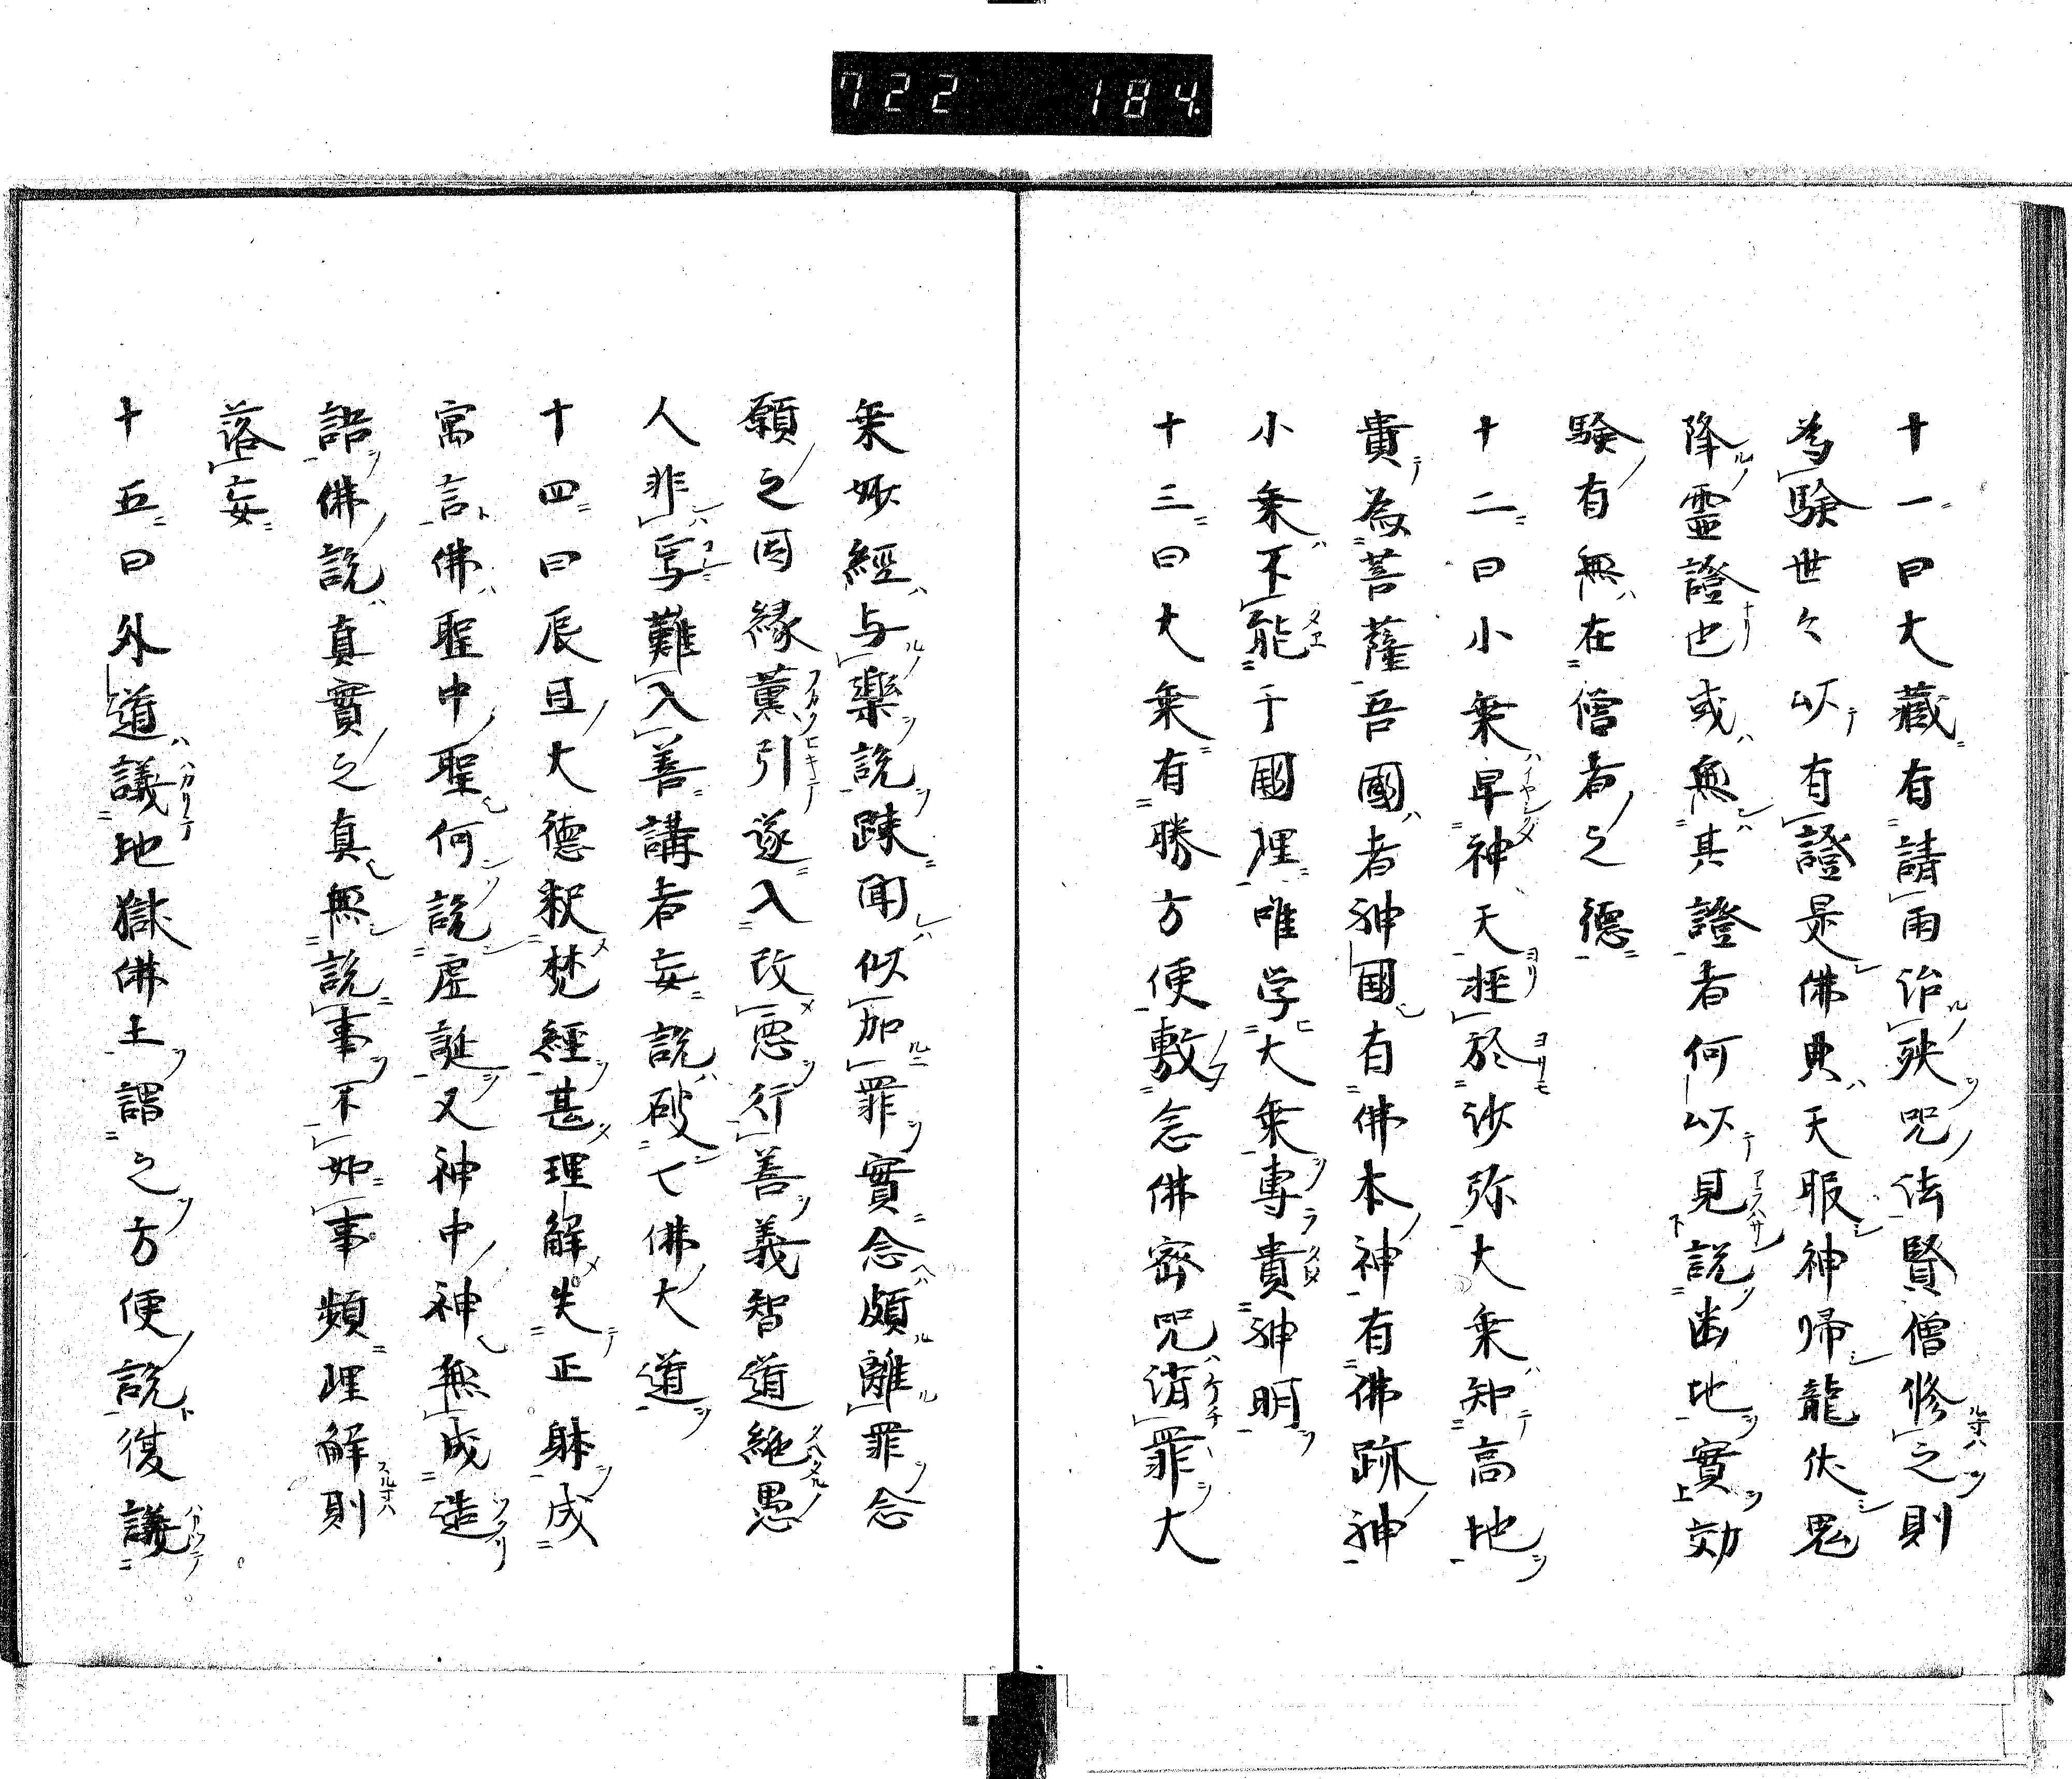 722 184.
十一曰大藏有請雨治殃咒法賢僧修之則
為驗世々以有證是佛典天服神帰龍伏鬼
降靈證也或無其證者何以見說幽地實效
驗有無在僧者之德
十二曰小乗卑神天拒於沙弥大乗知高地
貴為菩薩吾國者神國有佛本神有佛跡神
小乗不能于國理唯学大乗專貴神明
十三曰大乗有勝方便敷念佛密咒消罪大
乗妙經与樂說疎聞似加罪實念頗離罪念
願之因緣薫引遂入改惡行善義智道絶愚
人非写難入善講者妄說破七佛大道
十四曰辰旦大德釈梵經甚理解失正躰成
寓言佛聖中聖何說虚誕又神中神無成造
語佛說真實之真無說事不如事頻理解則
落妄
十五曰外道議地獄佛土謂之方便說復議